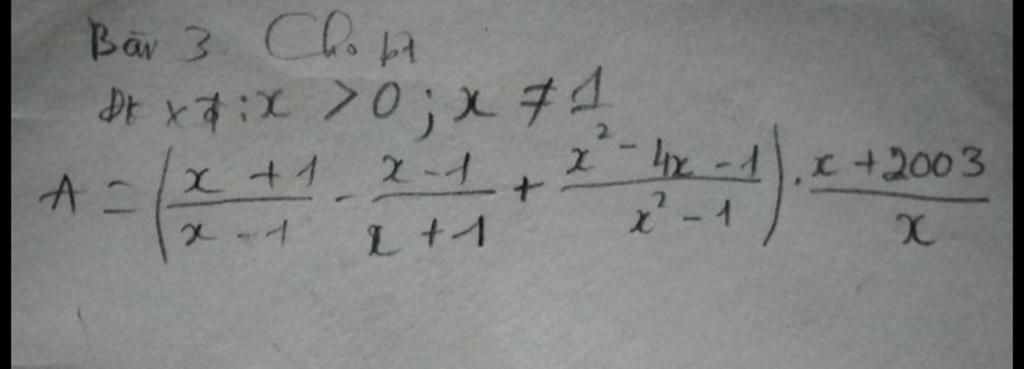 Bài 3 Cho bt
Đk xđ: x > 0; x ≠ 1
A = (\frac{x + 1}{x - 1} - \frac{x - 1}{x + 1} + \frac{x² - 4x - 1}{x² - 1}) . \frac{x + 2003}{x}